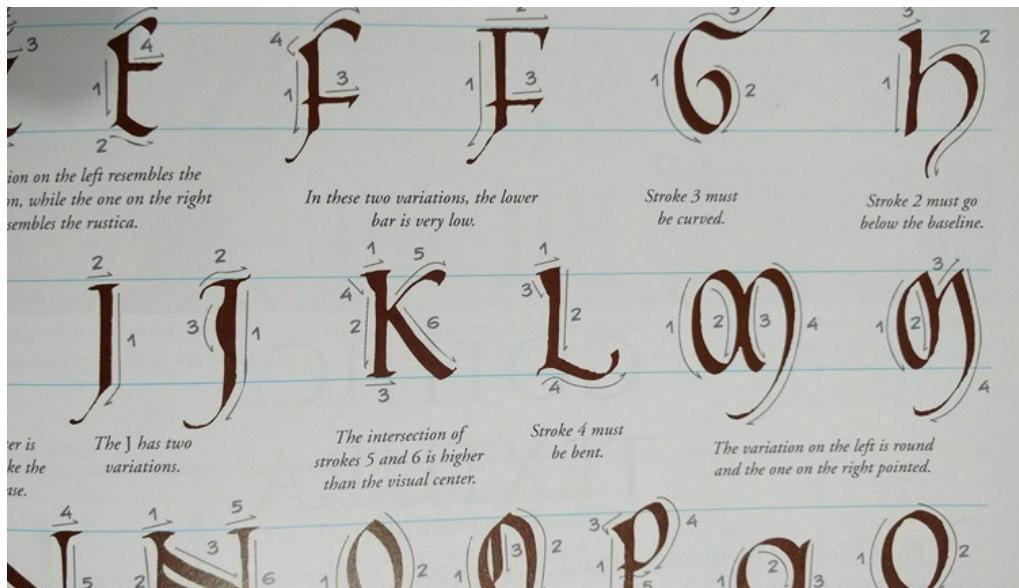 3 E 4 1 2
4 F 3 1
2 F 3 1
3 G 1 2
3 h 2 1
ion on the left resembles the
on, while the one on the right
sembles the rustica.
In these two variations, the lower
bar is very low.
Stroke 3 must
be curved.
Stroke 2 must go
below the baseline.
2 J 1
2 J 3 1
1 K 5 4 2 6 3
1 L 3 2 4
M 1 2 3 4
M 3 1 2 4
er is
ke the
ase.
The J has two
variations.
The intersection of
strokes 5 and 6 is higher
than the visual center.
Stroke 4 must
be bent.
The variation on the left is round
and the one on the right pointed.
4 5
1 N 5 3 2 6
O 1 2
1 3 2
3 P 4 1 5
2 3
O 1 2